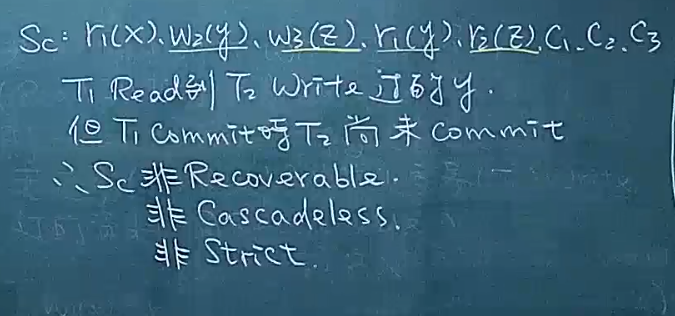 Sc: r1(x). w2(y). w3(z). r1(y). r2(z). C1. C2. C3
T1 Read到 T2 Write 过的 y.
但 T1 Commit 时 T2 尚未 commit
∴ Sc 非 Recoverable.
非 Cascadeless.
非 Strict.